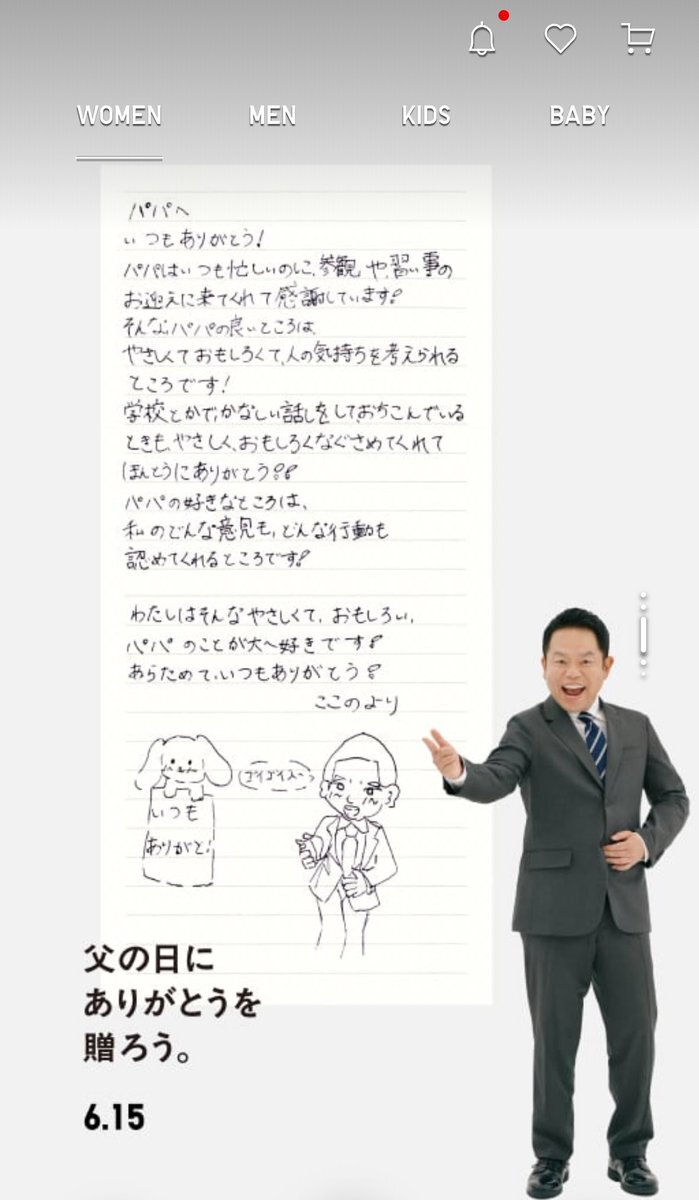 WOMEN MEN KIDS BABY
パパへ
いつもありがとう!
パパはいつも忙しいのに、参観や習い事の
お迎えに来てくれて感謝しています!
そんなパパの良いところは、
やさしくておもしろくて、人の気持ちを考えられる
ところです!
学校とかで、かなしい話しをして、おちこんでいる
ときも、やさしく、おもしろくなぐさめてくれて
ほんとうにありがとう!!
パパの好きなところは、
私のどんな意見も、どんな行動も
認めてくれるところです!
わたしはそんなやさしくて、おもしろい、
パパのことが大〜好きです!
あらためて、いつもありがとう!
ここのより
ゴイゴイスー
いつも
ありがと!
父の日に
ありがとうを
贈ろう。
6.15